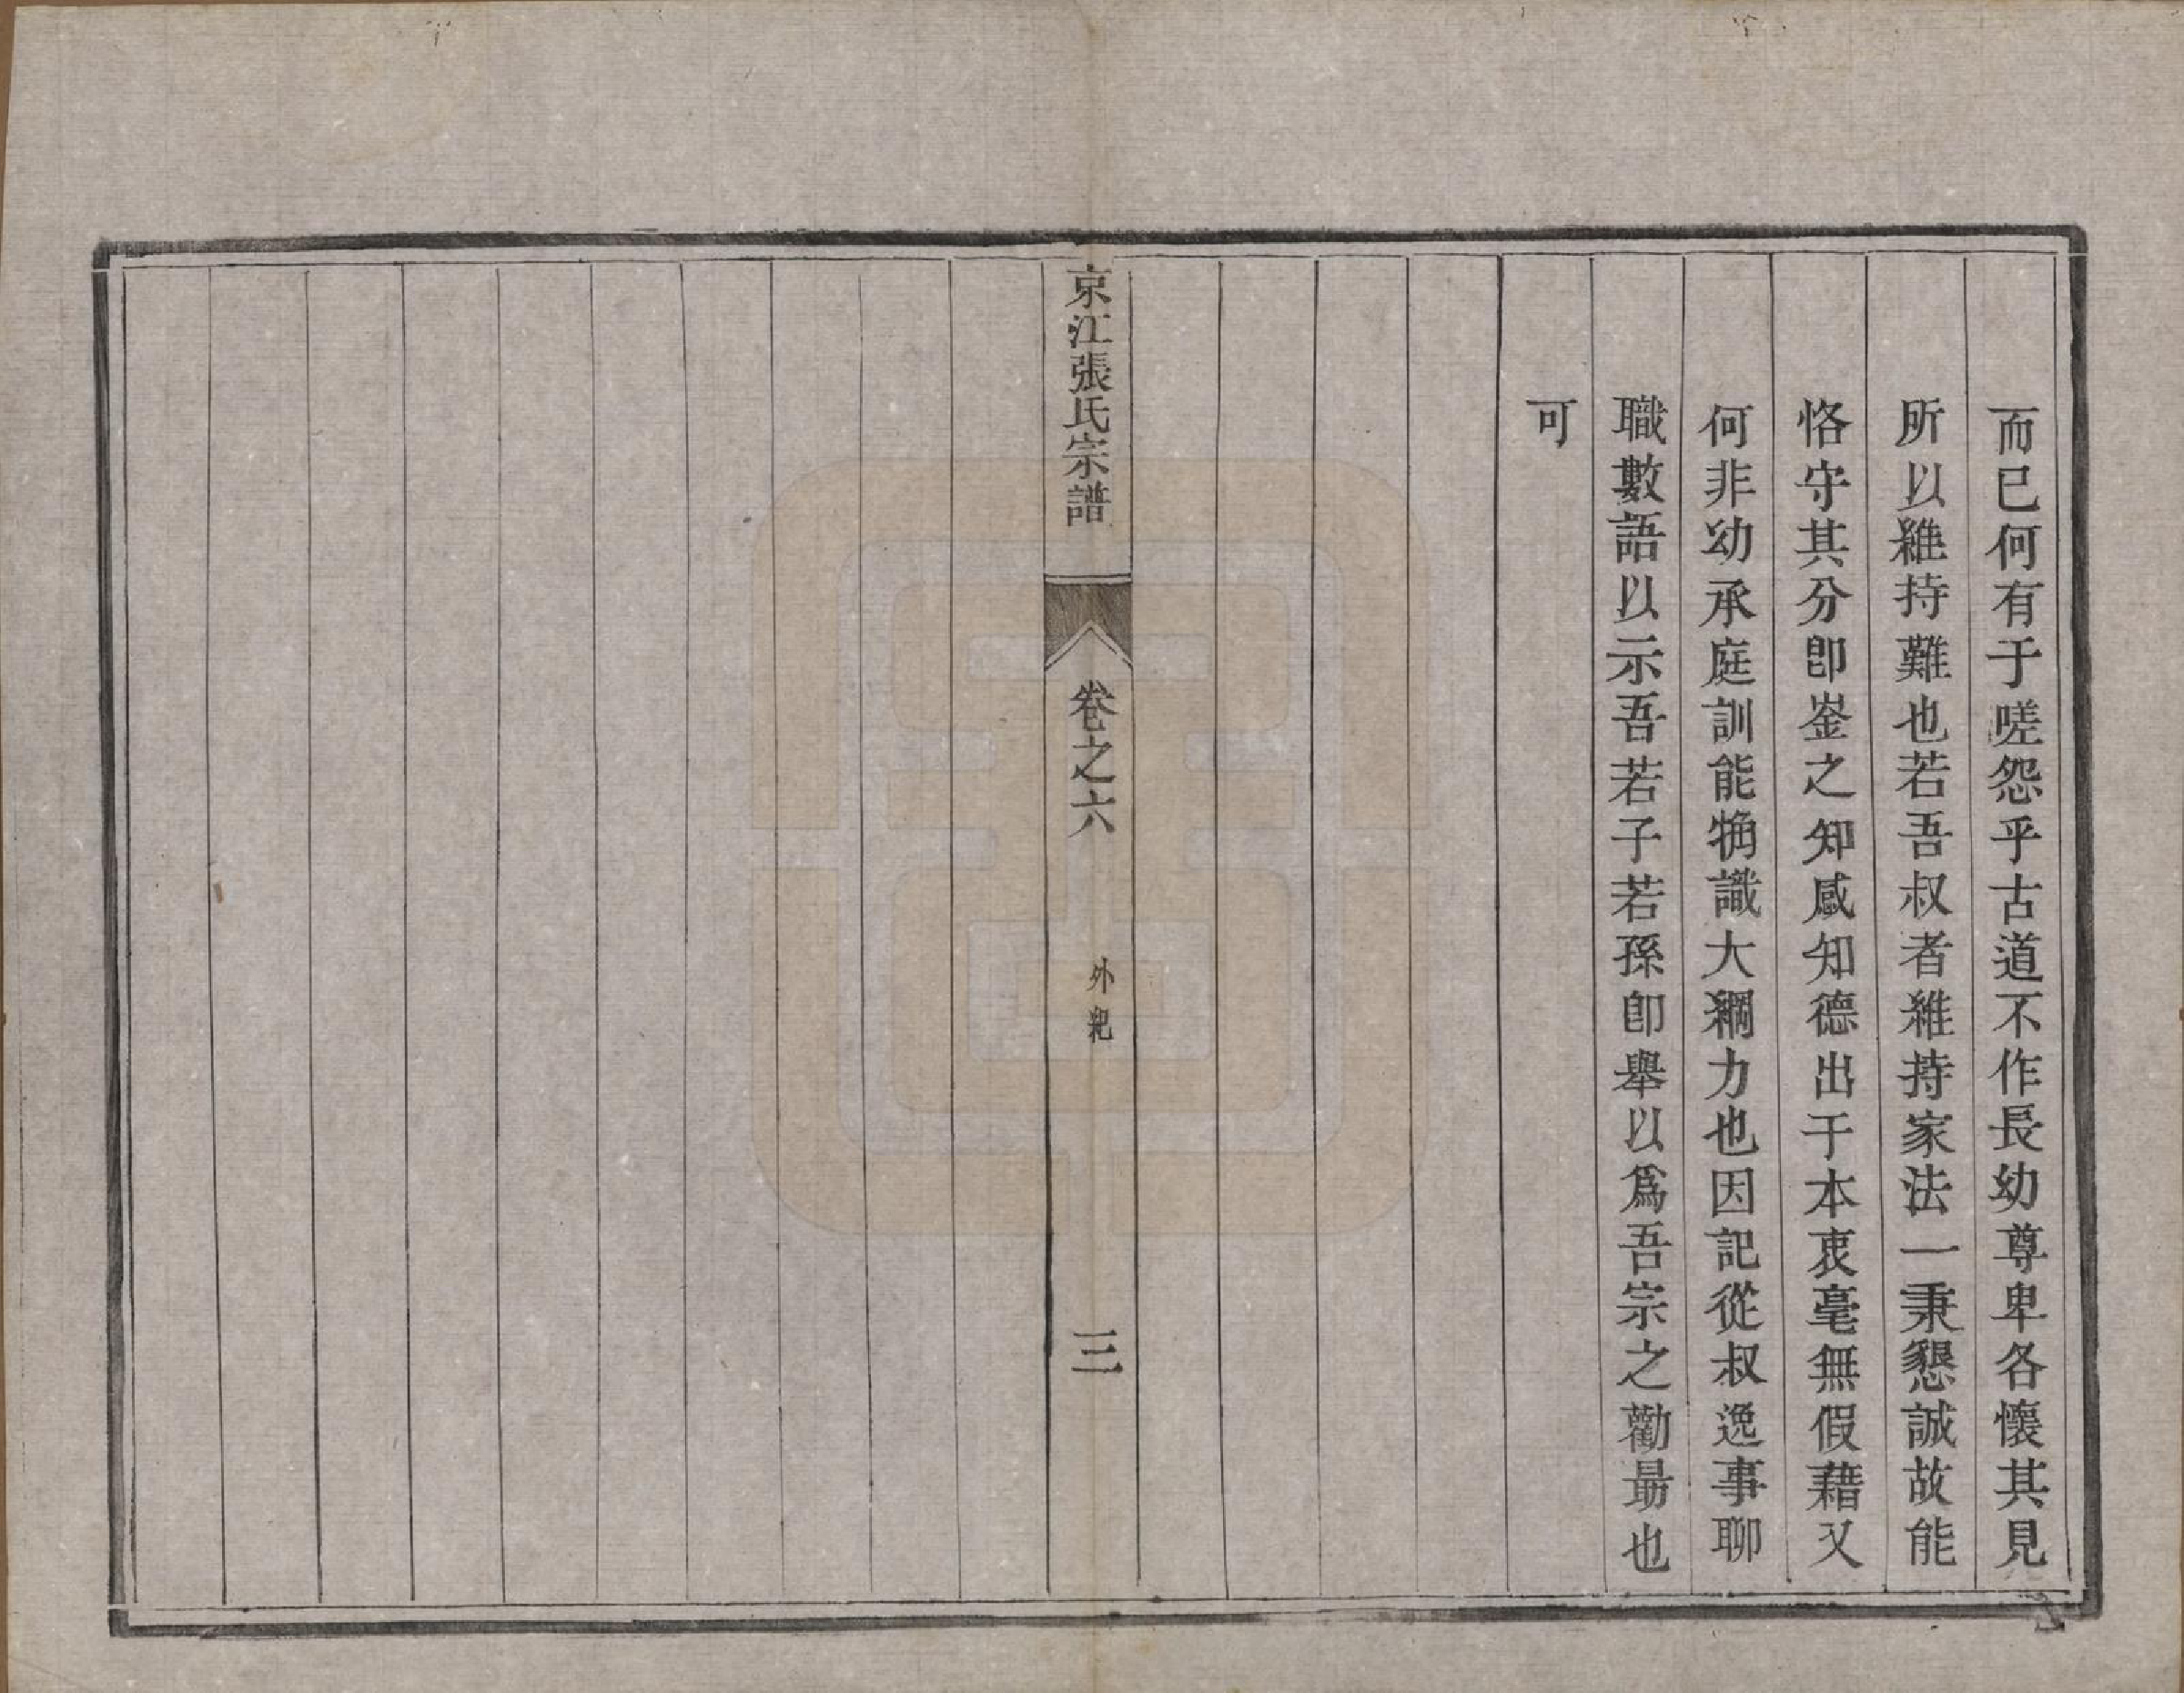 而已何有于嗟怨乎古道不作長幼尊卑各懷其見
所以維持難也若吾叔者維持家法一秉懇誠故能
恪守其分卽崟之知感知德出于本衷毫無假藉又
何非幼承庭訓能觕識大綱力也因記從叔逸事聊
職數語以示吾若子若孫卽舉以爲吾宗之勸最也
可
京江張氏宗譜
卷之六
外紀
三